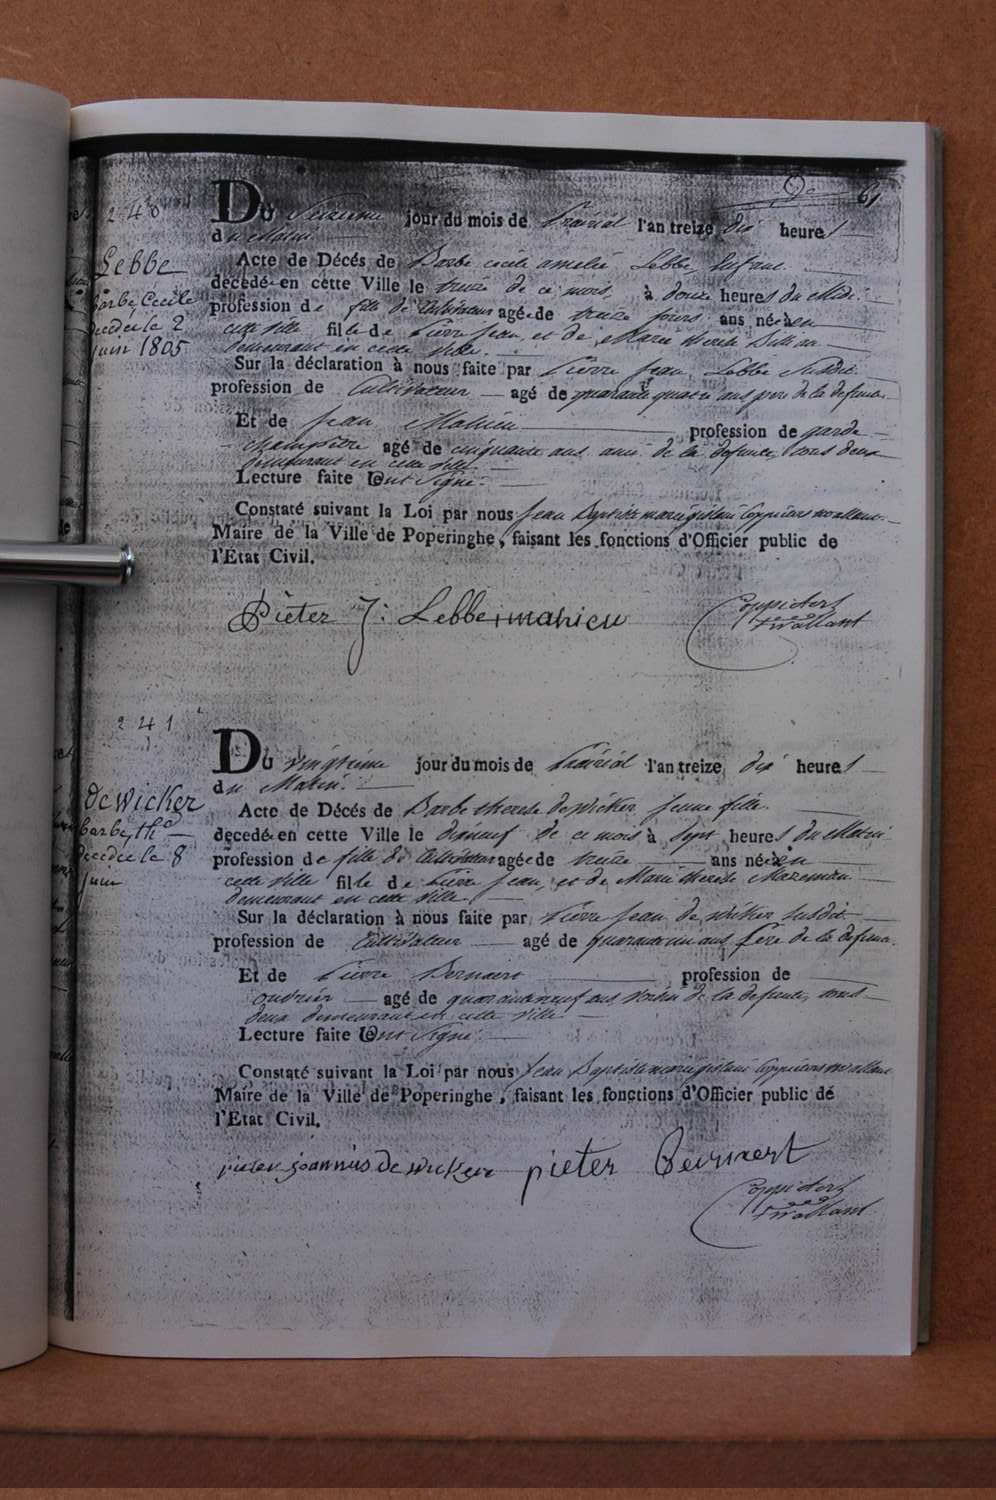 61
240
Du Seizieme jour du mois de Prairial l'an treize dix heures
du Matin
Lebbe
Barbe Cécile
decedée le 2
juin 1805
Acte de Décés de Barbe cecile amelie Lebbe Enfant
decedée en cette Ville le treize de ce mois, à douze heures du Midi
profession de fille de Cultivateur agée de treize jours ans née en
cette ville fille de Pierre Jean, et de Marie therese
demeurant en cette Ville.
Sur la déclaration à nous faite par Pierre Jean Lebbe Susdit
profession de Cultivateur agé de quarante quatre ans pere de la defunte
Et de Jean Mahieu profession de garde
champetre agé de cinquante ans ami de la defunte, tous deux
demeurant en cette ville
Lecture faite ont Signé.
Constaté suivant la Loi par nous Jean Baptiste
Maire de la Ville de Poperinghe, faisant les fonctions d'Officier public de
l'Etat Civil.
Pieter J: Lebbe mahieu
241
Du vingtieme jour du mois de Prairial l'an treize dix heures
du Matin.
deWicker
barbe thé
decedée le 8
juin
Acte de Décés de Barbe therese deWicker jeune fille.
decedée en cette Ville le dixneuf de ce mois à Sept heures du Matin
profession de fille de Cultivateur agée de treize ans née en
cette Ville fille de Pierre Jean, et de Marie therese Mazeman
demeurant en cette ville.
Sur la déclaration à nous faite par Pierre Jean de Wicker susdit
profession de Cultivateur agé de quarante un ans Pére de la defunte.
Et de Pierre Bernaert profession de
ouvrier agé de quaranteneuf ans voisin de la defunte, tous
deux demeurant en cette Ville
Lecture faite ont Signé.
Constaté suivant la Loi par nous Jean Baptiste
Maire de la Ville de Poperinghe, faisant les fonctions d'Officier public de
l'Etat Civil.
pieter joannus de wicker pieter Bernaert